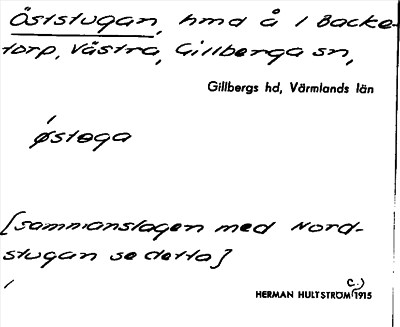 Öststugan, hmd å 1 Backe-
torp, Västra, Gillberga sn,
Gillbergs hd, Värmlands län
østøga
[sammanslagen med Nord-
stugan se detta]
HERMAN HULTSTRÖM (C.) 1915